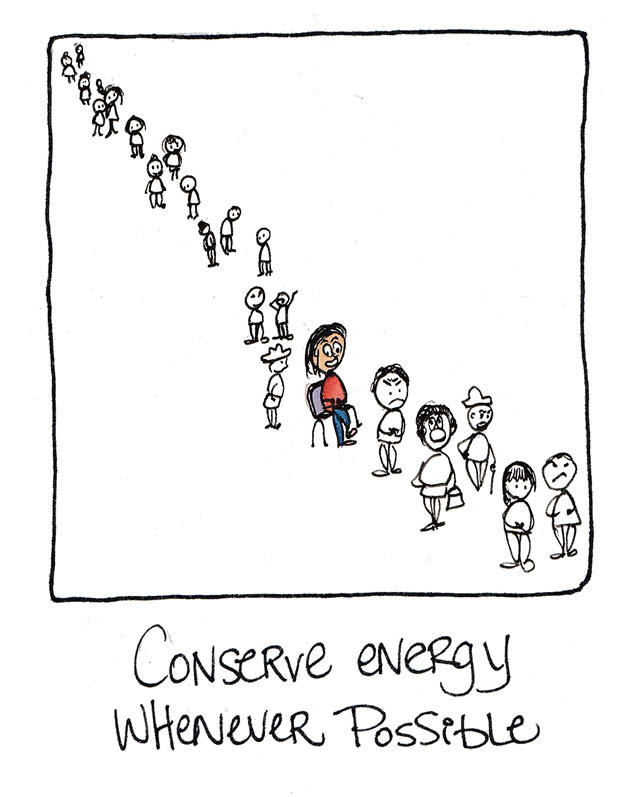 Conserve energy
Whenever Possible